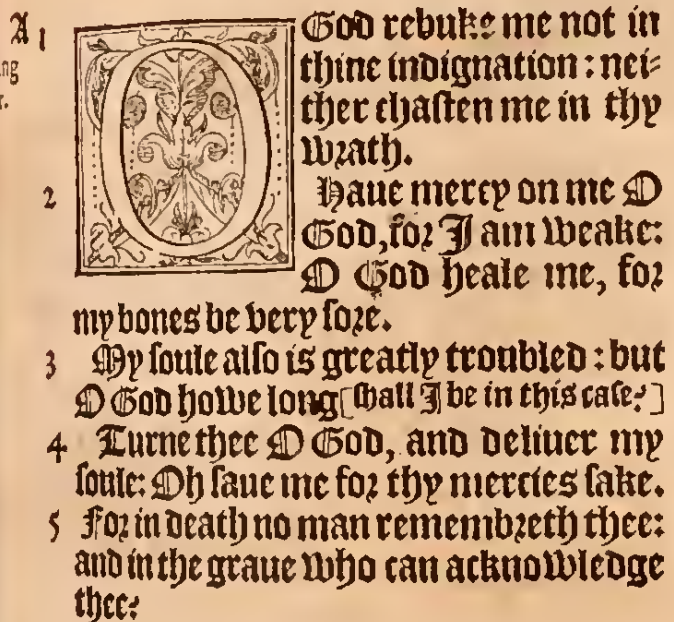 A 1 O God rebuke me not in
thine indignation: nei-
ther chasten me in thy
wrath.
2 Haue mercy on me O
God, for I am weake:
O God heale me, for
my bones be very sore.
3 My soule also is greatly troubled: but
O God howe long [shall I be in this case?]
4 Turne thee O God, and deliuer my
soule: Oh saue me for thy mercies sake.
5 For in death no man remembreth thee:
and in the graue who can acknowledge
thee?